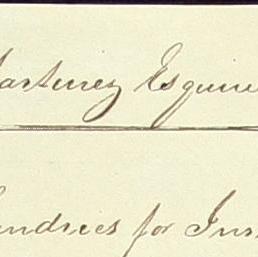 artinez Esquire
undries for Ins